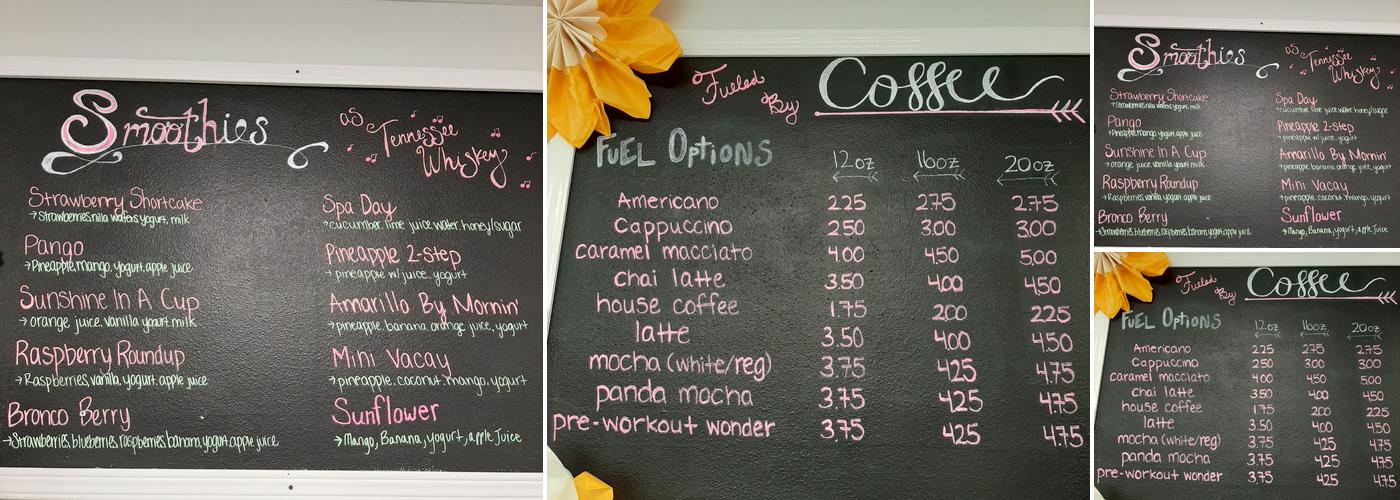 Smoothies
as Tennessee Whiskey
Strawberry Shortcake
→ Strawberries, nilla wafers, yogurt, milk
Pango
→ Pineapple, mango, yogurt, apple juice
Sunshine In A Cup
→ orange juice, vanilla yogurt, milk
Raspberry Roundup
→ Raspberries, vanilla, yogurt, apple juice
Bronco Berry
→ Strawberries, blueberries, raspberries, banana, yogurt, apple juice
Spa Day
→ cucumber, lime juice, water, honey/sugar
Pineapple 2-step
→ pineapple w/ juice, yogurt
Amarillo By Mornin'
→ pineapple, banana, orange juice, yogurt
Mini Vacay
→ pineapple, coconut, mango, yogurt
Sunflower
→ Mango, Banana, yogurt, apple Juice
Fueled By Coffee
FUEL OPTIONS 12oz 16oz 20oz
Americano 2.25 2.75 2.75
Cappuccino 2.50 3.00 3.00
caramel macciato 4.00 4.50 5.00
chai latte 3.50 4.00 4.50
house coffee 1.75 2.00 2.25
latte 3.50 4.00 4.50
mocha (white/reg) 3.75 4.25 4.75
panda mocha 3.75 4.25 4.75
pre-workout wonder 3.75 4.25 4.75
Smoothies
as Tennessee Whiskey
Strawberry Shortcake
→ Strawberries, nilla wafers, yogurt, milk
Pango
→ Pineapple, mango, yogurt, apple juice
Sunshine In A Cup
→ orange juice, vanilla yogurt, milk
Raspberry Roundup
→ Raspberries, vanilla, yogurt, apple juice
Bronco Berry
→ Strawberries, blueberries, raspberries, banana, yogurt, apple juice
Spa Day
→ cucumber, lime juice, water, honey/sugar
Pineapple 2-step
→ pineapple w/ juice, yogurt
Amarillo By Mornin'
→ pineapple, banana, orange juice, yogurt
Mini Vacay
→ pineapple, coconut, mango, yogurt
Sunflower
→ Mango, Banana, yogurt, apple Juice
Fueled By Coffee
FUEL OPTIONS 12oz 16oz 20oz
Americano 2.25 2.75 2.75
Cappuccino 2.50 3.00 3.00
caramel macciato 4.00 4.50 5.00
chai latte 3.50 4.00 4.50
house coffee 1.75 2.00 2.25
latte 3.50 4.00 4.50
mocha (white/reg) 3.75 4.25 4.75
panda mocha 3.75 4.25 4.75
pre-workout wonder 3.75 4.25 4.75